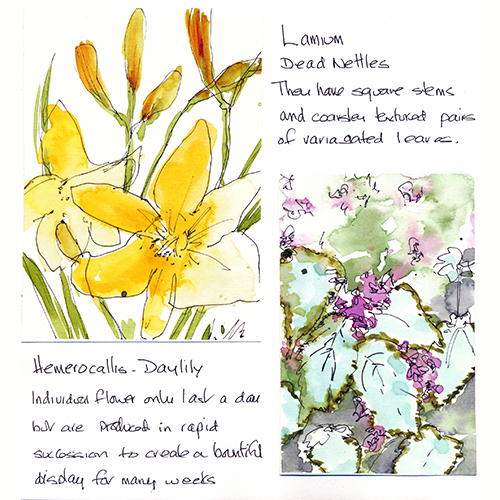 Lamium
Dead Nettles
They have square stems
and coarsley textured pairs
of variagated leaves.
Hemerocallis - Daylily
Individual flower only last a day
but are produced in rapid
sucession to create a bountiful
display for many weeks